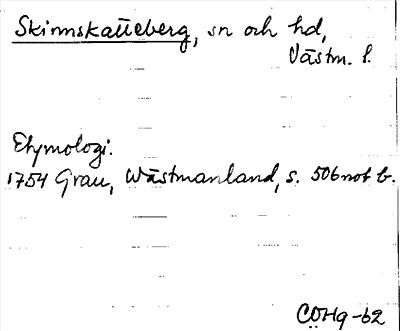 Skinnskatteberg, sn och hd,
Västm. l.
Etymologi.
1754 Grau, Wästmanland, s. 506 not b.
COHq-62